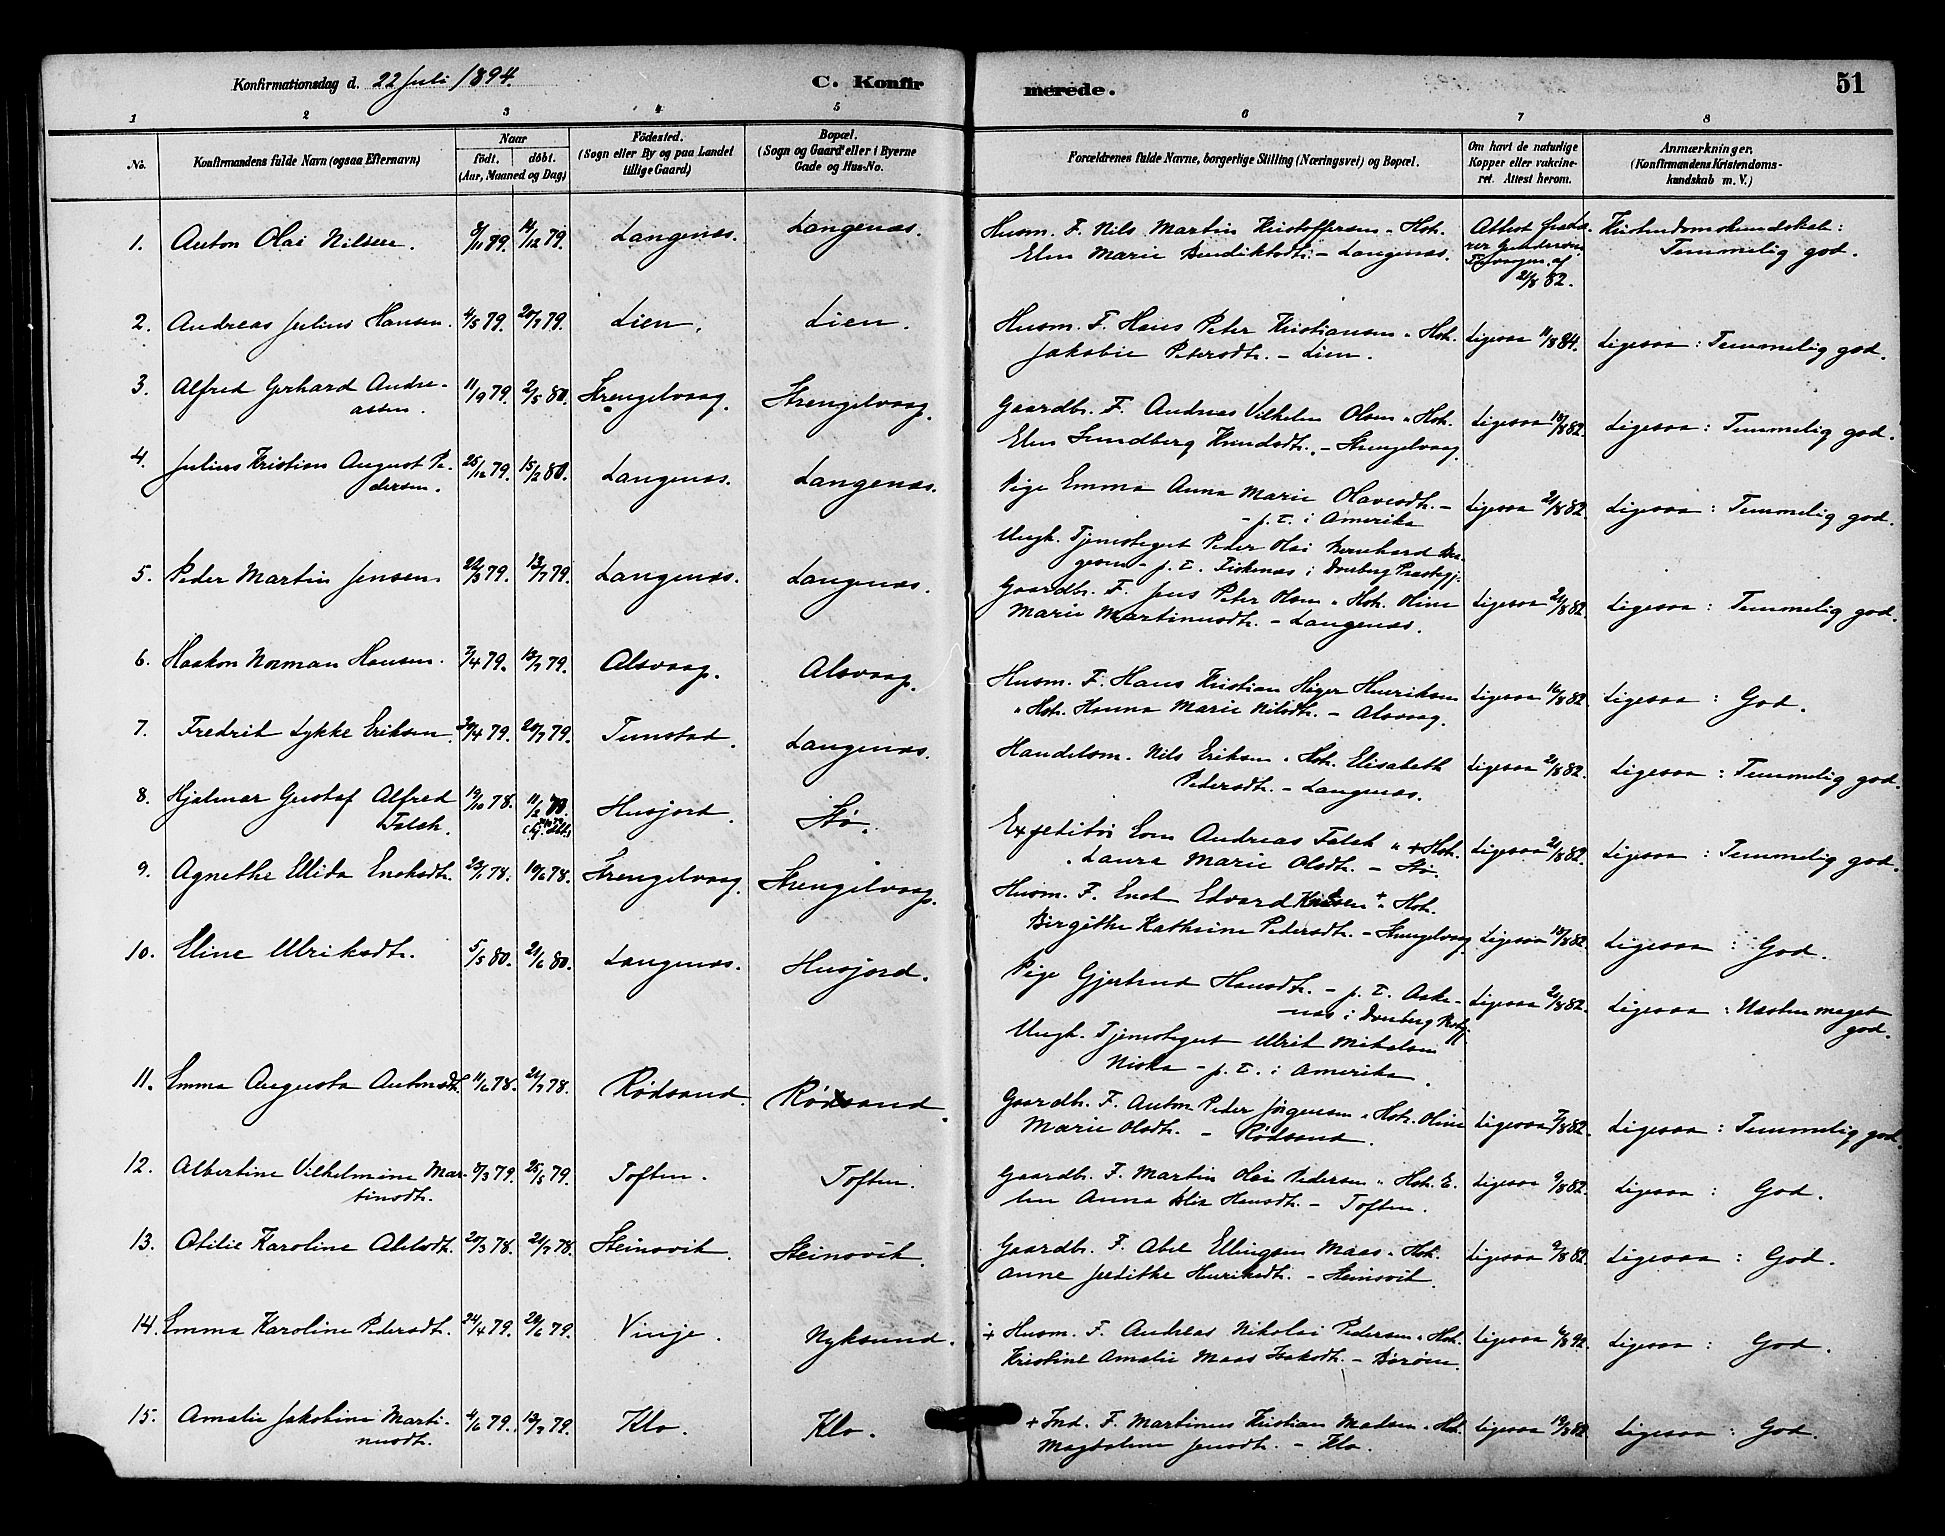 Konfirmationsdag d. 22 Juli 1894.
C. Konfirmerede.
51
1 2 3 4 5 6 7 8
No.
Konfirmandens fulde Navn (ogsaa Efternavn)
Naar
födt. döbt.
(Aar, Maaned og Dag)
Födested.
(Sogn eller By og paa Landet
tillige Gaard)
Bopæl.
(Sogn og Gaard eller i Byerne
Gade og Hus-No.
Forældrenes fulde Navne, borgerlige Stilling (Næringsvei) og Bopæl.
Om havt de naturlige
Kopper eller vakcine-
ret. Attest herom.
Anmærkninger.
(Konfirmandens Kristendoms-
kundskab m. V.)
1. Anton Olai Nilsen. 9/11 79. 14/12 79. Langenæs. Langenæs.
Husm. F. Nils Martin Kristoffersen " Hst.
Elen Marie Bendiktsdtr. - Langenæs.
Attest
21/8 82.
Kristendomskundskab:
Temmelig god.
2. Andreas Julius Hansen. 4/5 79. 20/7 79. Lien. Lien.
Husm. F. Hans Peter Kristiansen " Hst.
Jakobie Petersdtr. - Lien.
Ligesaa 11/8 84. Ligesaa : Temmelig god.
3. Alfred Gerhard Andre-
assen. 11/9 79. 2/5 80. Strengelvaag. Strengelvaag.
Gaardbr. F. Andreas Vilhelm Olsen " Hst.
Elen Sundberg Knudsdtr. - Strengelvaag.
Ligesaa 18/8 82. Ligesaa : Temmelig god.
4. Julius Kristian August Pe-
dersen. 25/12 79. 15/2 80. Langenæs. Langenæs.
Pige Emma Anna Marie Olavesdtr. -
- p. T. i Amerika
Ungk. Tjenestegut Peder Olai Bernhard
- p. T. Fiskenæs i Dverberg Prestegj.
Ligesaa 21/8 82. Ligesaa : Temmelig god.
5. Peder Martin Jensen. 22/3 79. 13/7 79. Langenæs. Langenæs.
Gaardbr. F. Jens Peter Olsen " Hst. Oline
Marie Martinusdtr. - Langenæs.
Ligesaa 21/8 82. Ligesaa : Temmelig god.
6. Haakon Norman Hansen. 7/4 79. 13/7 79. Alsvaag. Alsvaag.
Husm. F. Hans Kristian Henriksen
" Hst. Hanna Marie Nilsdtr. - Alsvaag.
Ligesaa 16/8 82. Ligesaa : God.
7. Fredrik Lykke Eriksen. 30/4 79. 20/7 79. Tunstad. Langenæs.
Handelsm. Nils Eriksen " Hst. Elisabeth
Pedersdtr. - Langenæs.
Ligesaa 21/8 82. Ligesaa : Temmelig god.
8. Hjalmar Gustaf Alfred
Falch. 19/10 78. 11/2 79. Husjord. Stø.
Expeditör Andreas Falch " + Hst.
Laura Marie Olsdtr. - Stø.
Ligesaa 21/8 82. Ligesaa : Temmelig god.
9. Agnethe Ellida Enoksdtr. 23/1 78. 10/6 78. Strengelvaag. Strengelvaag.
Husm. F. Enok Edvard Knudsen + " Hst.
Birgithe Kathrine Pedersdtr. - Strengelvaag.
Ligesaa 18/8 82. Ligesaa : God.
10. Eline Ulriksdtr. 5/5 80. 21/6 80. Langenæs. Husjord.
Pige Gjertrud Hansdtr. - p. T. Aake-
næs i Dverberg Prstgj.
Ungk. Tjenestegut Ulrik Mikalsen
Niska - p. T. i Amerika.
Ligesaa 21/8 82. Ligesaa : Næsten meget
god.
11. Emma Augusta Antonsdtr. 11/6 78. 21/7 78. Rødsand. Rødsand.
Gaardbr. F. Anton Peder Jörgensen " Hst. Oline
Marie Olsdtr. - Rødsand.
Ligesaa 7/8 82. Ligesaa : Temmelig god.
12. Albertine Vilhelmine Mar-
tinsdtr. 8/3 79. 25/5 79. Toften. Toften.
Gaardbr. F. Martin Olai Pedersen " Hst. E-
len Anna Hansdtr. - Toften.
Ligesaa 9/8 82. Ligesaa : God.
13. Otilie Karoline Abelsdtr. 20/3 78. 21/7 78. Steinsvik. Steinsvik.
Gaardbr. F. Abel Ellingsen Maas " Hst.
Anne Jredikke Henriksdtr. - Steinsvik.
Ligesaa 9/8 82. Ligesaa : God.
14. Emma Karoline Pedersdtr. 24/4 79. 29/6 79. Vinje. Nyksund.
+ Husm. F. Andreas Nikolai Pedersen " Hst.
Kristine Amalie Maas Isaksdtr. - Börøen.
Ligesaa 6/8 92. Ligesaa : God.
15. Amalie Jakobine Marti-
nusdtr. 4/6 79. 13/7 79. Klo. Klo.
+ Ind. F. Martinus Kristian Madsen " Hst.
Magdalena Jensdtr. - Klo.
Ligesaa 19/8 82. Ligesaa : God.